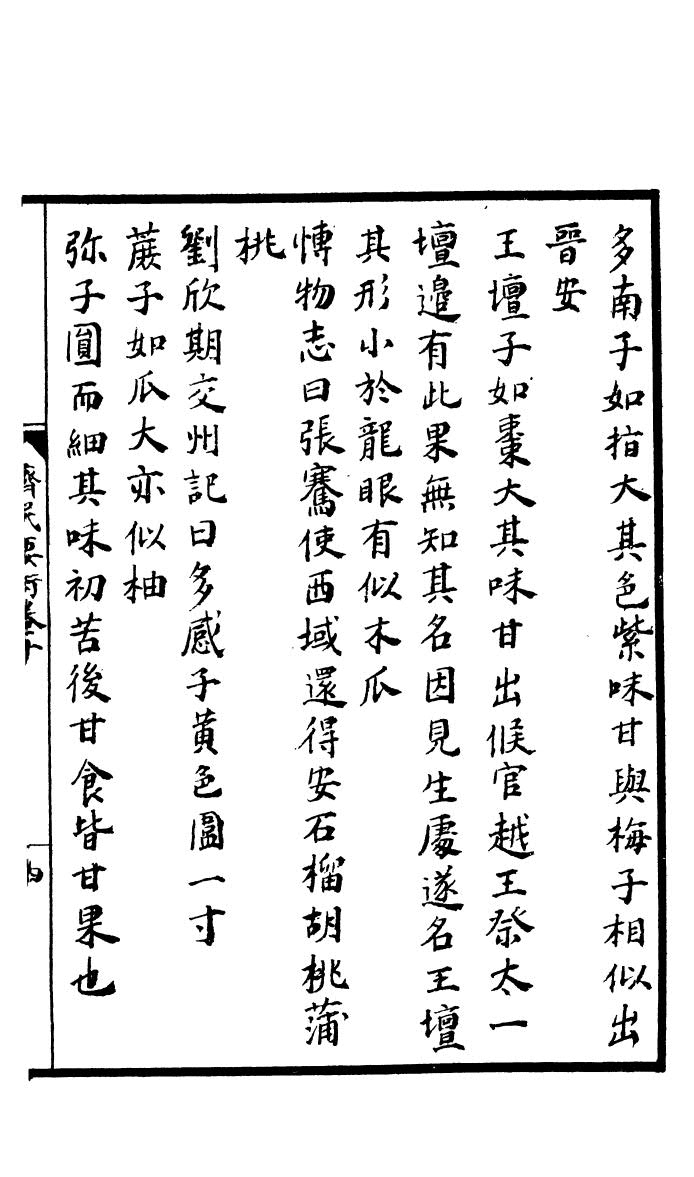 多南子如指大其色紫味甘與梅子相似出
晉安
王壇子如棗大其味甘出候官越王祭太一
壇邉有此果無知其名因見生處遂名王壇
其形小於龍眼有似木瓜
博物志曰張騫使西域還得安石榴胡桃蒲
桃
劉欣期交州記曰多感子黄色圓一寸
蔗子如瓜大亦似柚
弥子圓而細其味初苦後甘食皆甘果也
齊民要術卷十